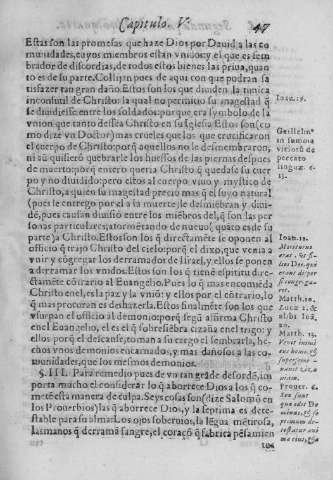 Capitulo. V.
47
Estas son las promesas que haze Dios por Dauid a las co
munidades, cuyos miembros estan vnidos: y el que es sem
brador de discordias, de todos estos bienes las priua, quan
to es de su parte. Collijan pues de aqui con que podran sa
tisfazer tan gran daño. Estos son los que diuiden la tunica
inconsutil de Christo: la qual no permitio su magestad q̃
se diuidiesse entre los soldados: porque era symbolo de la
vnion que tanto dessea Christo en su Iglesia. Estos son (co
mo dize vn Doctor) mas crueles que los que crucificaron
el cuerpo de Christo: porq̃ aquellos no le desmembraron,
ni aũ quisierõ quebrarle los huessos de las piernas despues
de muerto: porq̃ entero queria Christo q̃ quedasse su cuer
po y no diuidido: pero estos al cuerpo viuo y mystico de
Christo, a quien su magestad precio mas q̃ el suyo natural
(pues le entrego por el a la muerte) le desmiẽbran y diui-
dẽ, pues causan diuisiõ entre los miẽbros del, q̃ son las per
sonas particulares, atormẽtando de nueuo (quãto es de su
parte) a Christo. Estos son los q̃ directamẽte se oponen al
officio q̃ trajo Christo del cielo: porq̃ el dixo, que venia a
vnir y cõgregar los derramados de Israel, y ellos se ponen
a derramar los vnidos. Estos son los q̃ tienẽ espiritu dire-
ctamẽte cõtrario al Euangelio. Pues lo q̃ mas encomiẽda
Christo en el, es la paz y la vniõ: y ellos por el cõtrario, lo
q̃ mas procuran es deshazerla. Estos finalmẽte son los que
vsurpan el officio al demonio: porq̃ segũ afirma Christo
en el Euangelio, el es el q̃ sobresiẽbra cizaña en el trigo: y
ellos porq̃ el descanse, toman a su cargo el sembrarla, he-
chos vnos demonios encarnados, y mas dañosos a las co-
munidades, que los mesmos demonios.
§. III. Para remedio pues de vn tan grãde desordẽ, im
porta mucho el considerar lo q̃ aborrece Dios a los q̃ co-
metẽ esta manera de culpa. Seys cosas son (dize Salomõ en
los Prouerbios) las q̃ aborrece Dios, y la septima es dete-
stable para su alma: Los ojos soberuios, la lẽgua mẽtirosa,
las manos q̃ derramã sangre, el coraçõ q̃ fabrica pẽsamien
Ioan. 19.
Guillelm⁹
in summa
vitiorũ de
peccato
linguæ. c.
Ioan. 11.
Matt. 10.
Matth. 13.
Prouer. 6.